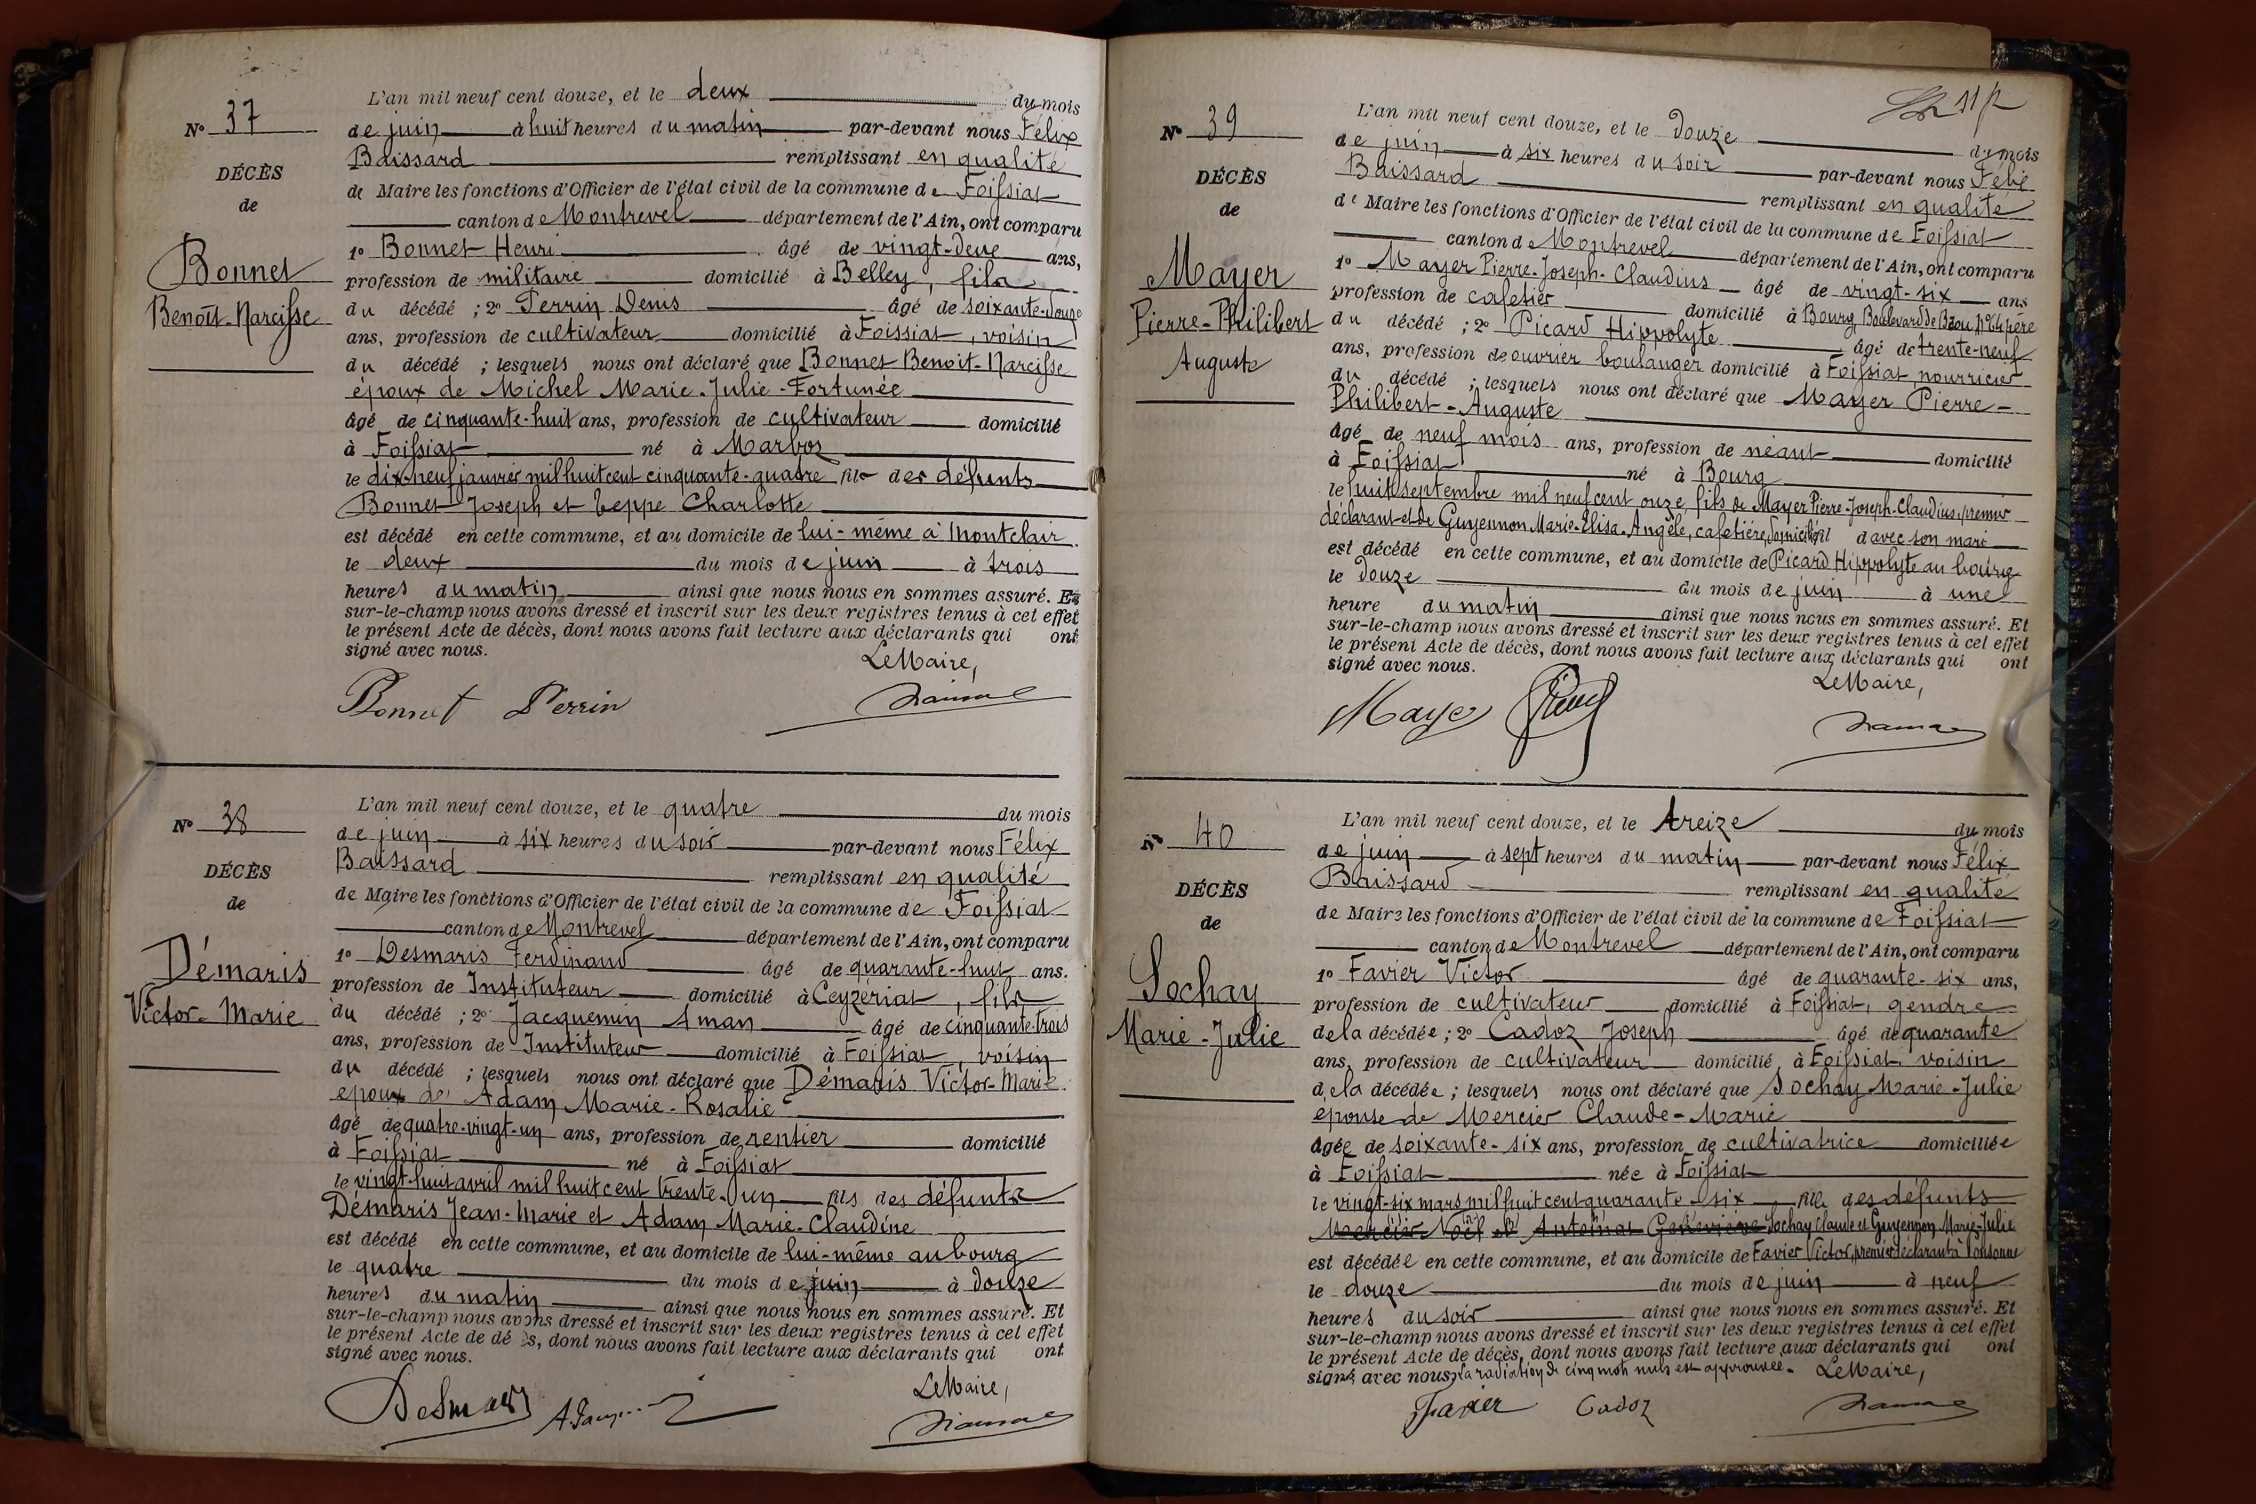 N° 37
DÉCÈS
de
Bonnet
Benoît-Narcisse
L'an mil neuf cent douze, et le deux du mois
de juin à huit heures du matin par-devant nous Félix
Baissard remplissant en qualité
de Maire les fonctions d'Officier de l'état civil de la commune de Foissiat
canton de Montrevel département de l'Ain, ont comparu
1° Bonnet Henri âgé de vingt-deux ans,
profession de militaire domicilié à Belley, fils
du décédé ; 2° Perrin Denis âgé de soixante-douze
ans, profession de cultivateur domicilié à Foissiat, voisin
du décédé ; lesquels nous ont déclaré que Bonnet Benoit-Narcisse
époux de Michel Marie-Julie-Fortunée
âgé de cinquante-huit ans, profession de cultivateur domicilié
à Foissiat né à Marboz
le dix-neuf janvier mil huit cent cinquante-quatre fils des défunts
Bonnet Joseph et Teppe Charlotte
est décédé en cette commune, et au domicile de lui-même à Montclair
le deux du mois de juin à trois
heures du matin ainsi que nous nous en sommes assuré. Et
sur-le-champ nous avons dressé et inscrit sur les deux registres tenus à cet effet
le présent Acte de décès, dont nous avons fait lecture aux déclarants qui ont
signé avec nous.
Le Maire,
Bonnet Perrin
N° 38
DÉCÈS
de
Démaris
Victor-Marie
L'an mil neuf cent douze, et le quatre du mois
de juin à six heures du soir par-devant nous Félix
Baissard remplissant en qualité
de Maire les fonctions d'Officier de l'état civil de la commune de Foissiat
canton de Montrevel département de l'Ain, ont comparu
1° Desmaris Ferdinand âgé de quarante-huit ans.
profession de Instituteur domicilié à Ceyzériat, fils
du décédé ; 2° Jacquemin Aman âgé de cinquante-trois
ans, profession de Instituteur domicilié à Foissiat, voisin
du décédé ; lesquels nous ont déclaré que Démaris Victor-Marie
époux de Adam Marie-Rosalie
âgé de quatre-vingt-un ans, profession de rentier domicilié
à Foissiat né à Foissiat
le vingt-huit avril mil huit cent trente-un fils des défunts
Démaris Jean-Marie et Adam Marie-Claudine
est décédé en cette commune, et au domicile de lui-même au bourg
le quatre du mois de juin à douze
heures du matin ainsi que nous nous en sommes assuré. Et
sur-le-champ nous avons dressé et inscrit sur les deux registres tenus à cet effet
le présent Acte de décès, dont nous avons fait lecture aux déclarants qui ont
signé avec nous.
Le Maire,
N° 39
DÉCÈS
de
Mayer
Pierre-Philibert
Auguste
L'an mil neuf cent douze, et le douze du mois
de juin à six heures du soir par-devant nous Félix
Baissard remplissant en qualité
de Maire les fonctions d'Officier de l'état civil de la commune de Foissiat
canton de Montrevel département de l'Ain, ont comparu
1° Mayer Pierre-Joseph-Claudius âgé de vingt-six ans
profession de cafetier domicilié à Bourg, Boulevard de Brou, père
du décédé ; 2° Picard Hippolyte âgé de trente-neuf
ans, profession de ouvrier boulanger domicilié à Foissiat, nourricier
du décédé ; lesquels nous ont déclaré que Mayer Pierre-
Philibert-Auguste
âgé de neuf mois ans, profession de néant domicilié
à Foissiat né à Bourg
le huit septembre mil neuf cent onze, fils de Mayer Pierre-Joseph-Claudius, premier
déclarant et de Guyennon Marie-Elisa-Angèle, cafetière, domiciliée d avec son mari
est décédé en cette commune, et au domicile de Picard Hippolyte au bourg
le douze du mois de juin à une
heure du matin ainsi que nous nous en sommes assuré. Et
sur-le-champ nous avons dressé et inscrit sur les deux registres tenus à cet effet
le présent Acte de décès, dont nous avons fait lecture aux déclarants qui ont
signé avec nous.
Le Maire,
Mayer
N° 40
DÉCÈS
de
Sochay
Marie-Julie
L'an mil neuf cent douze, et le treize du mois
de juin à sept heures du matin par-devant nous Félix
Baissard remplissant en qualité
de Maire les fonctions d'Officier de l'état civil de la commune de Foissiat
canton de Montrevel département de l'Ain, ont comparu
1° Favier Victor âgé de quarante-six ans,
profession de cultivateur domicilié à Foissiat, gendre
de la décédée ; 2° Cadoz Joseph âgé de quarante
ans, profession de cultivateur domicilié à Foissiat voisin
de la décédée ; lesquels nous ont déclaré que Sochay Marie-Julie
épouse de Mercier Claude-Marie
âgée de soixante-six ans, profession de cultivatrice domiciliée
à Foissiat née à Foissiat
le vingt-six mars mil huit cent quarante-six, fille des défunts
Mercier Noël et Antoinat Geneviève Sochay Claude et Guyennon Marie-Julie
est décédée en cette commune, et au domicile de Favier Victor, premier déclarant à
le douze du mois de juin à neuf
heures du soir ainsi que nous nous en sommes assuré. Et
sur-le-champ nous avons dressé et inscrit sur les deux registres tenus à cet effet
le présent Acte de décès, dont nous avons fait lecture aux déclarants qui ont
signé avec nous, la radiation de cinq mots nuls est approuvée. Le Maire,
Favier Cadoz